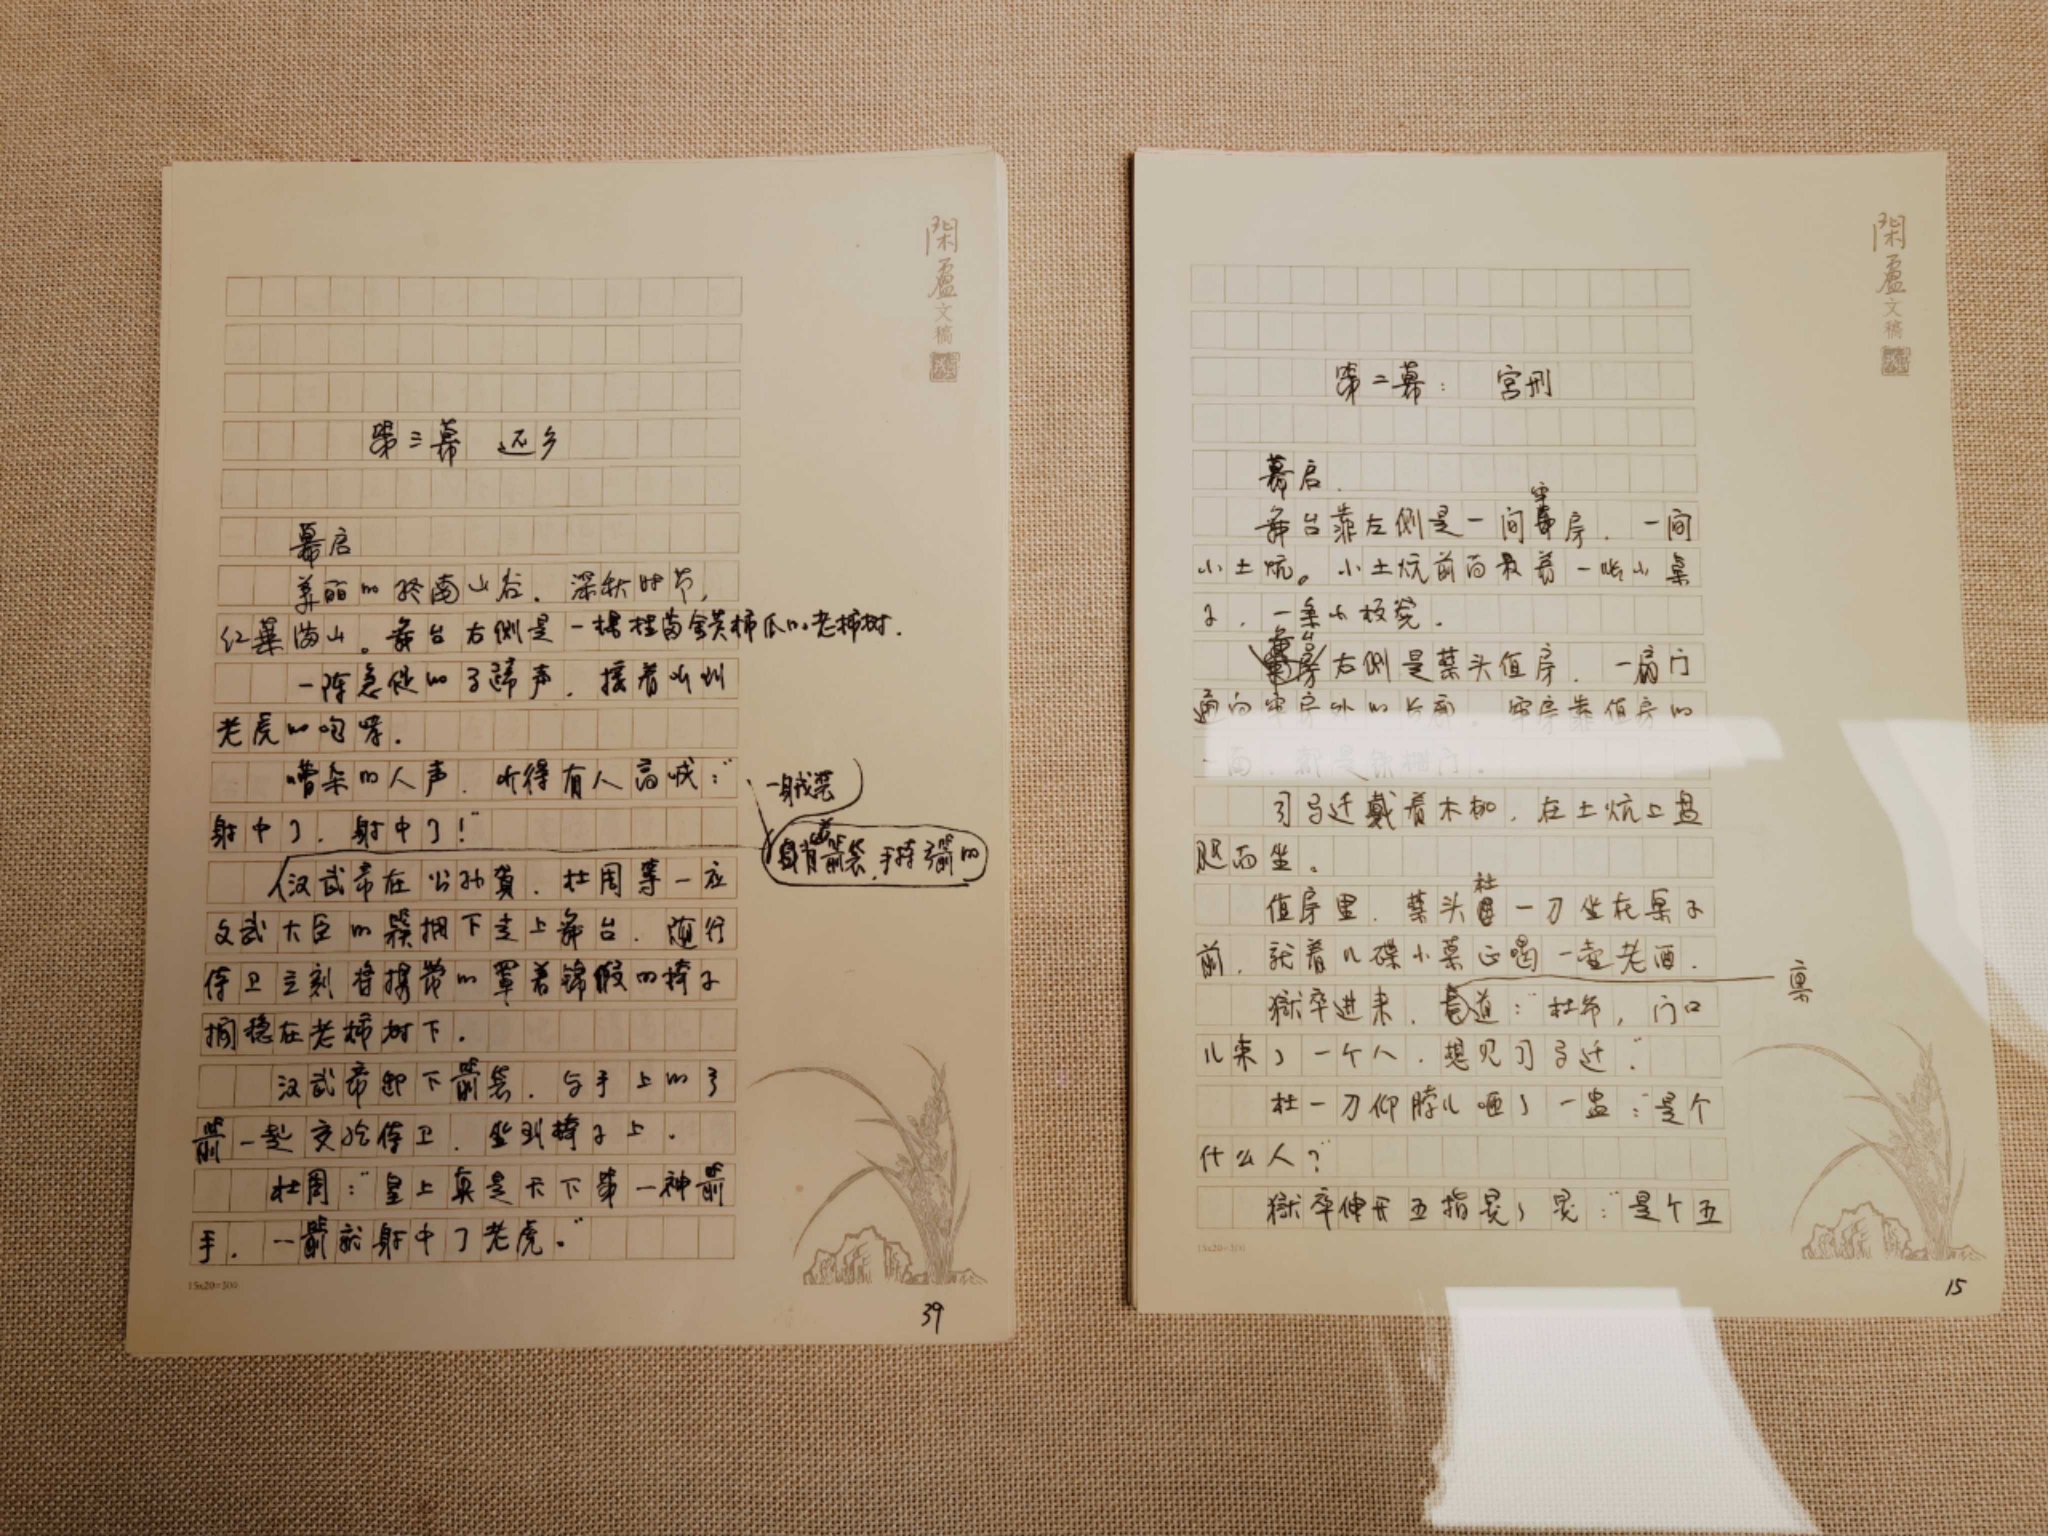 閑廬文稿
第三幕 还乡
幕启
美丽的终南山谷．深秋时节，
红叶满山。舞台右侧是一棵挂茴金黄柿瓜的老柿树．
一阵急促的马蹄声．接着听到
老虎的咆哮．
嘈杂的人声．听得有人高喊：“
射中了．射中了！”
一身戎装
身背箭袋．手持弓箭的
汉武帝在公孙贺．杜周等一应
文武大臣的簇拥下走上舞台．随行
侍卫立刻将携带的罩着锦缎的椅子
搁稳在老柿树下．
汉武帝卸下箭袋．与手上的弓
箭一起交给侍卫．坐到椅子上．
杜周：“皇上真是天下第一神箭
手．一箭就射中了老虎。”
15x20=300
39
閑廬文稿
第二幕：宫刑
幕启．
舞台靠左侧是一间牢房．一间
小土炕。小土炕前面放着一张小桌
子．一条小板凳．
舞台右侧是禁头值房．一扇门
通向牢房外的长廊．牢房靠值房的
一面．都是铁栅门．
司马迁戴着木枷．在土炕上盘
腿而坐．
值房里．禁头杜一刀坐在桌子
前．就着几碟小菜正喝一壶老酒．
禀
狱卒进来．道：“杜爷，门口
儿来了一个人．想见司马迁”
杜一刀仰脖儿咂了一盅：“是个
什么人？”
狱卒伸开五指晃了晃：“是个五
15x20=300
15